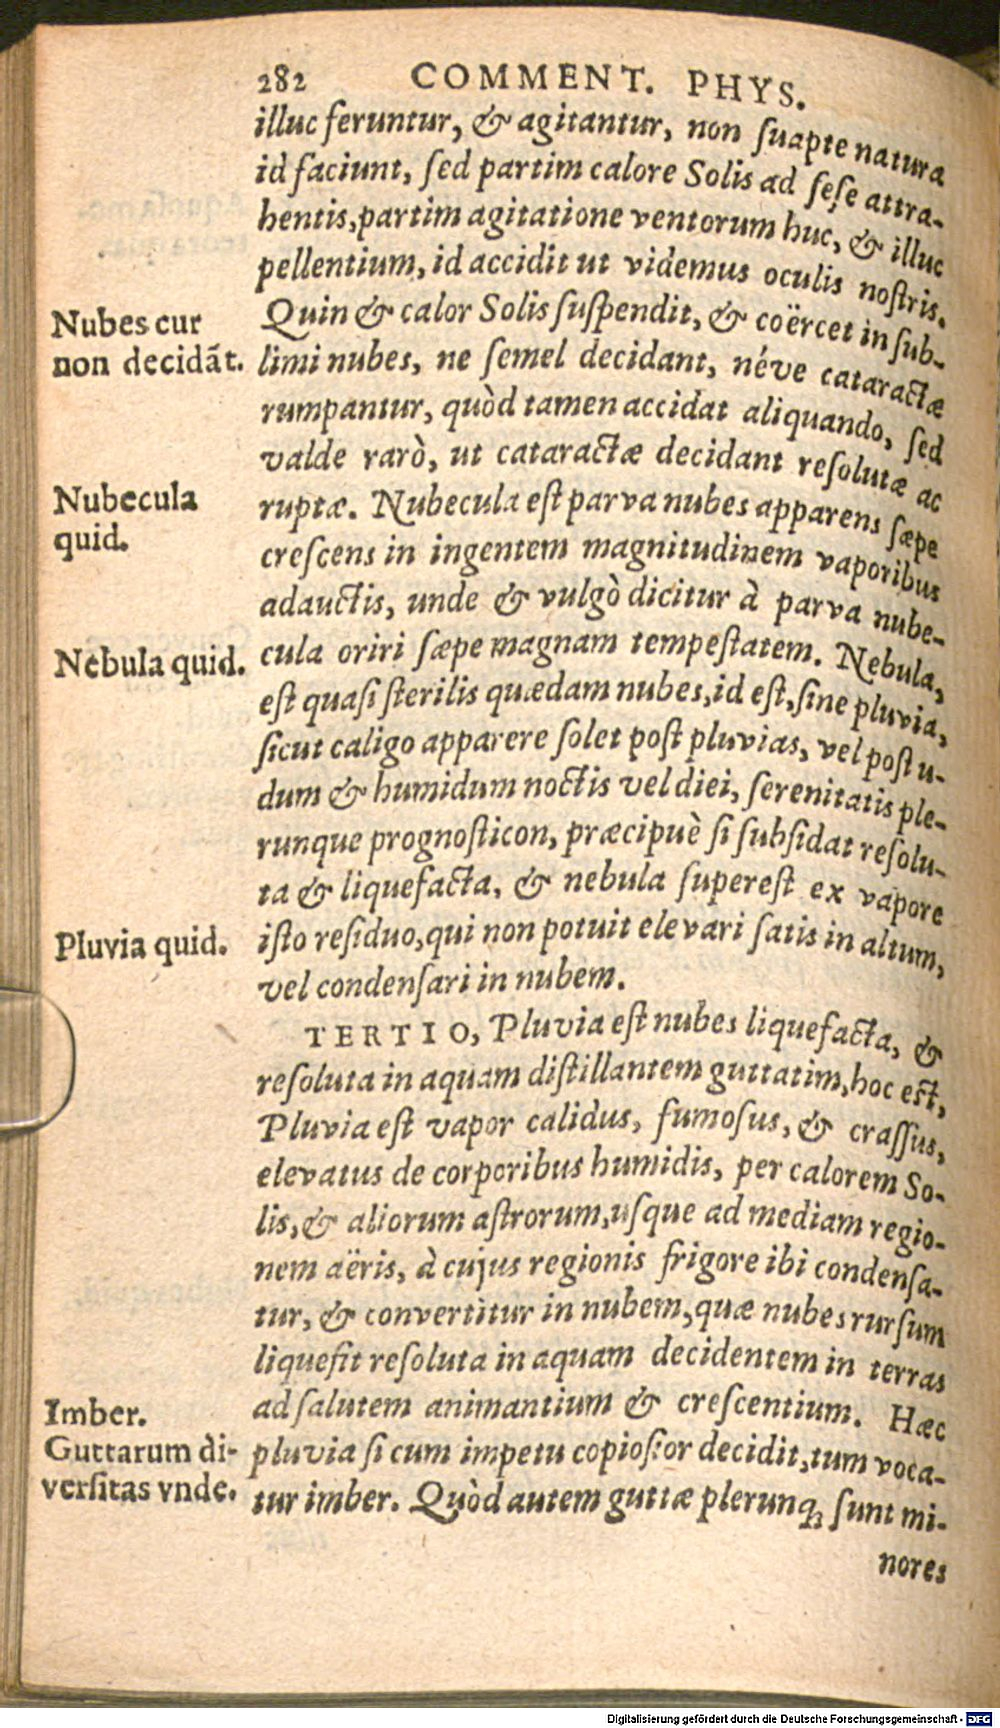 282 COMMENT. PHYS.
illuc feruntur, & agitantur, non ſuapte natura
id faciunt, ſed partim calore Solis ad ſeſe attra-
hentis, partim agitatione ventorum huc, & illuc
pellentium, id accidit ut videmus oculis noſtris.
Nubes cur
non decidãt.
Quin & calor Solis ſuſpendit, & coërcet in ſub-
limi nubes, ne ſemel decidant, néve cataractæ
rumpantur, quòd tamen accidat aliquando, ſed
valde rarò, ut cataractæ decidant reſolutæ ac
Nubecula
quid.
ruptæ. Nubecula eſt parva nubes apparens ſæpe
creſcens in ingentem magnitudinem vaporibus
adauctis, unde & vulgò dicitur à parva nube-
Nebula quid.
cula oriri ſæpe magnam tempeſtatem. Nebula,
eſt quaſi ſterilis quædam nubes, id eſt, ſine pluvia,
ſicut caligo apparere ſolet poſt pluvias, vel poſt u-
dum & humidum noctis vel diei, ſerenitatis ple-
runque prognoſticon, præcipuè ſi ſubſidat reſolu-
ta & liquefacta, & nebula supereſt ex vapore
Pluvia quid.
iſto reſiduo, qui non potuit elevari ſatis in altum,
vel condenſari in nubem.
TERTIO, Pluvia eſt nubes liquefacta, &
reſoluta in aquam diſtillantem guttatim, hoc eſt,
Pluvia eſt vapor calidus, fumoſus, & craſſus,
elevatus de corporibus humidis, per calorem So-
lis, & aliorum aſtrorum, uſque ad mediam regio-
nem aëris, à cujus regionis frigore ibi condenſa-
tur, & convertitur in nubem, quæ nubes rurſum
liquefit reſoluta in aquam decidentem in terras
Imber.
ad ſalutem animantium & creſcentium. Hæc
Guttarum di-
verſitas vnde.
pluvia ſi cum impetu copioſior decidit, tum voca-
tur imber. Quòd autem guttæ plerunq; ſunt mi-
nores
Digitalisierung gefördert durch die Deutsche Forschungsgemeinschaft - DFG